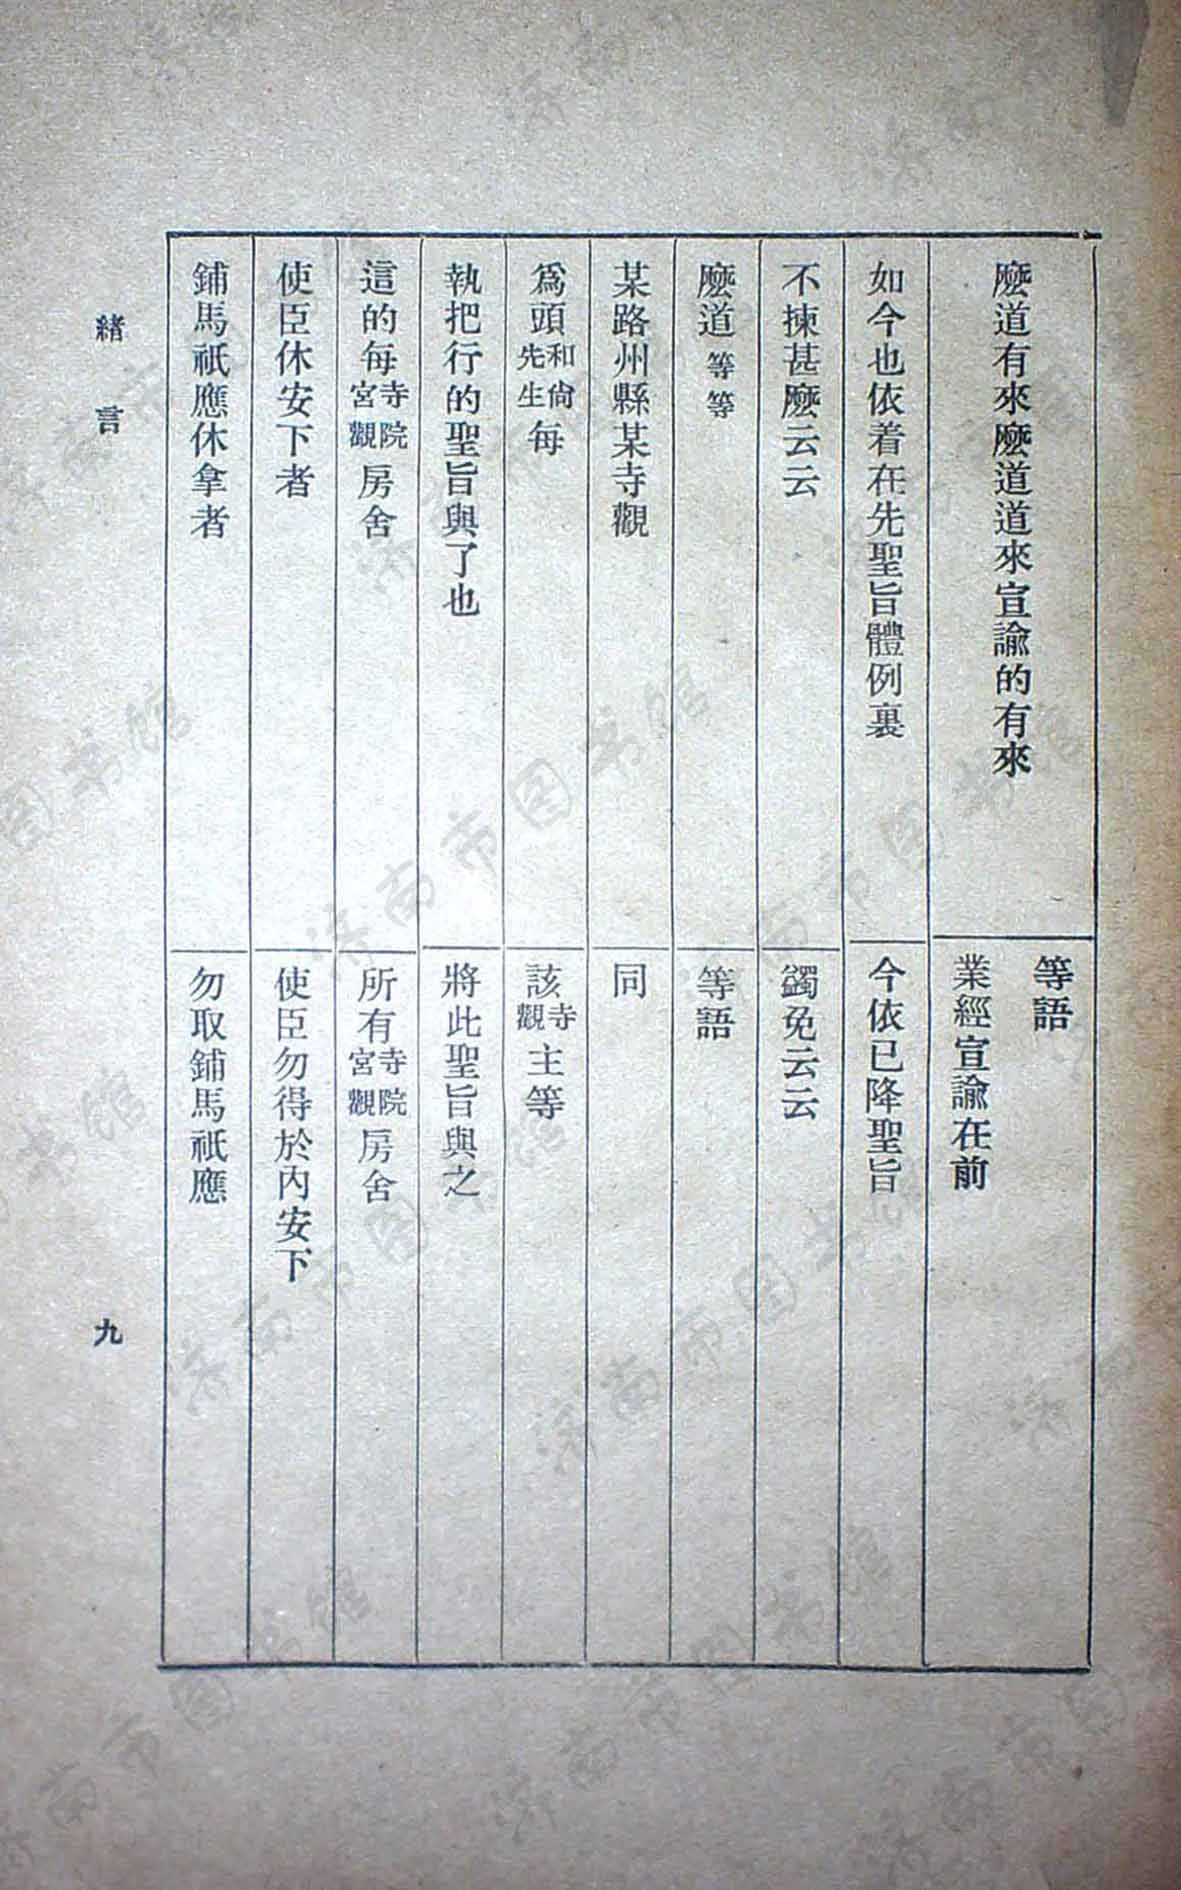 麽道有來麽道道來宣諭的有來
等語
業經宣諭在前
如今也依着在先聖旨體例裏
今依已降聖旨
不揀甚麽云云
蠲免云云
麽道等等
等語
某路州縣某寺觀
同
爲頭和尙先生每
該寺觀主等
執把行的聖旨與了也
將此聖旨與之
這的每寺院宮觀房舍
所有寺院宮觀房舍
使臣休安下者
使臣勿得於內安下
鋪馬祇應休拿者
勿取鋪馬祇應
緒言
九
济南市图书馆